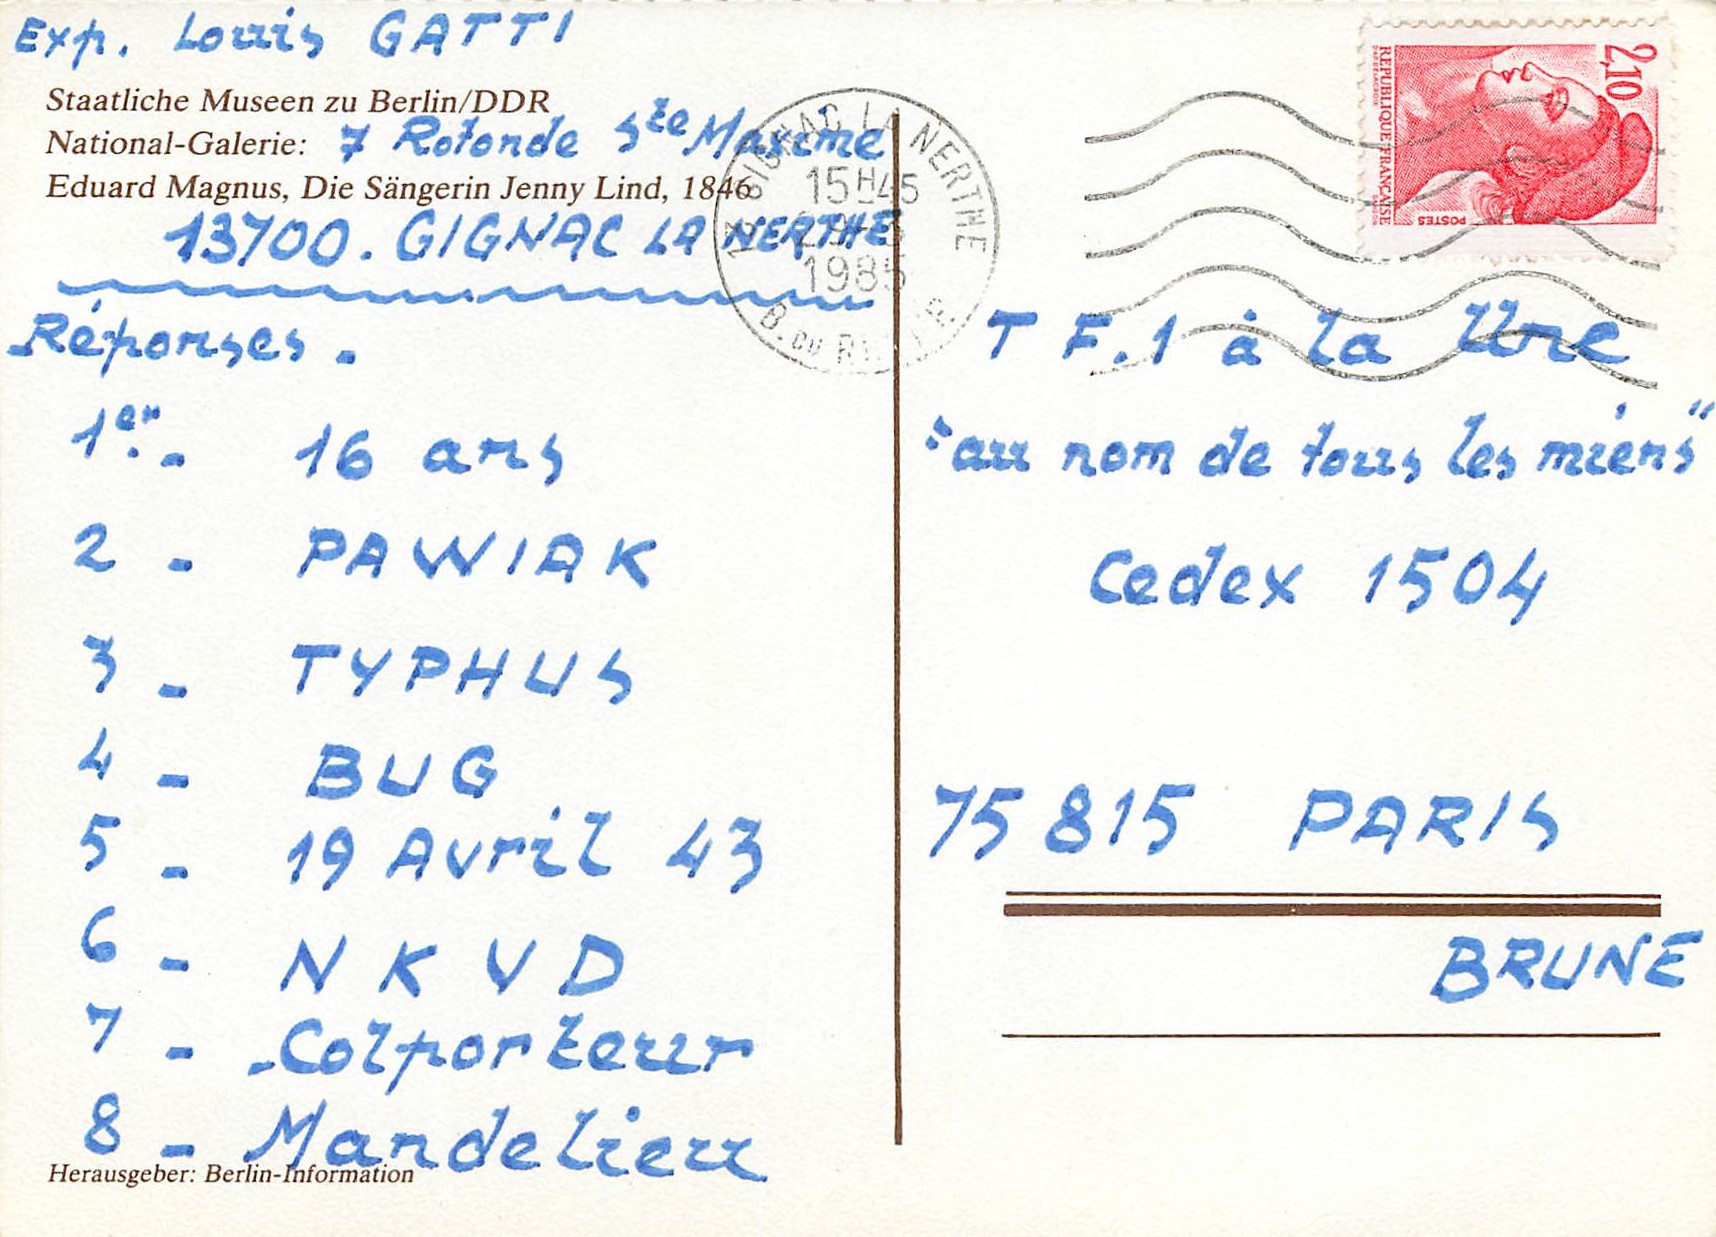 Exp. Louis GATTI
Staatliche Museen zu Berlin/DDR
National-Galerie: 7 Rotonde Ste Maxime
Eduard Magnus, Die Sängerin Jenny Lind, 1846
13700. GIGNAC LA NERTHE
Réponses.
1er. - 16 ans
2 - PAWIAK
3 - TYPHUS
4 - BUG
5 - 19 Avril 43
6 - NKVD
7 - Colporteur
8 - Mandelieu
Herausgeber: Berlin-Information
GIGNAC LA NERTHE
15H45
1985
B. DU
2,10
REPUBLIQUE FRANÇAISE
POSTES
T F.1 à la Une
"au nom de tous les miens"
Cedex 1504
75815 PARIS
BRUNE